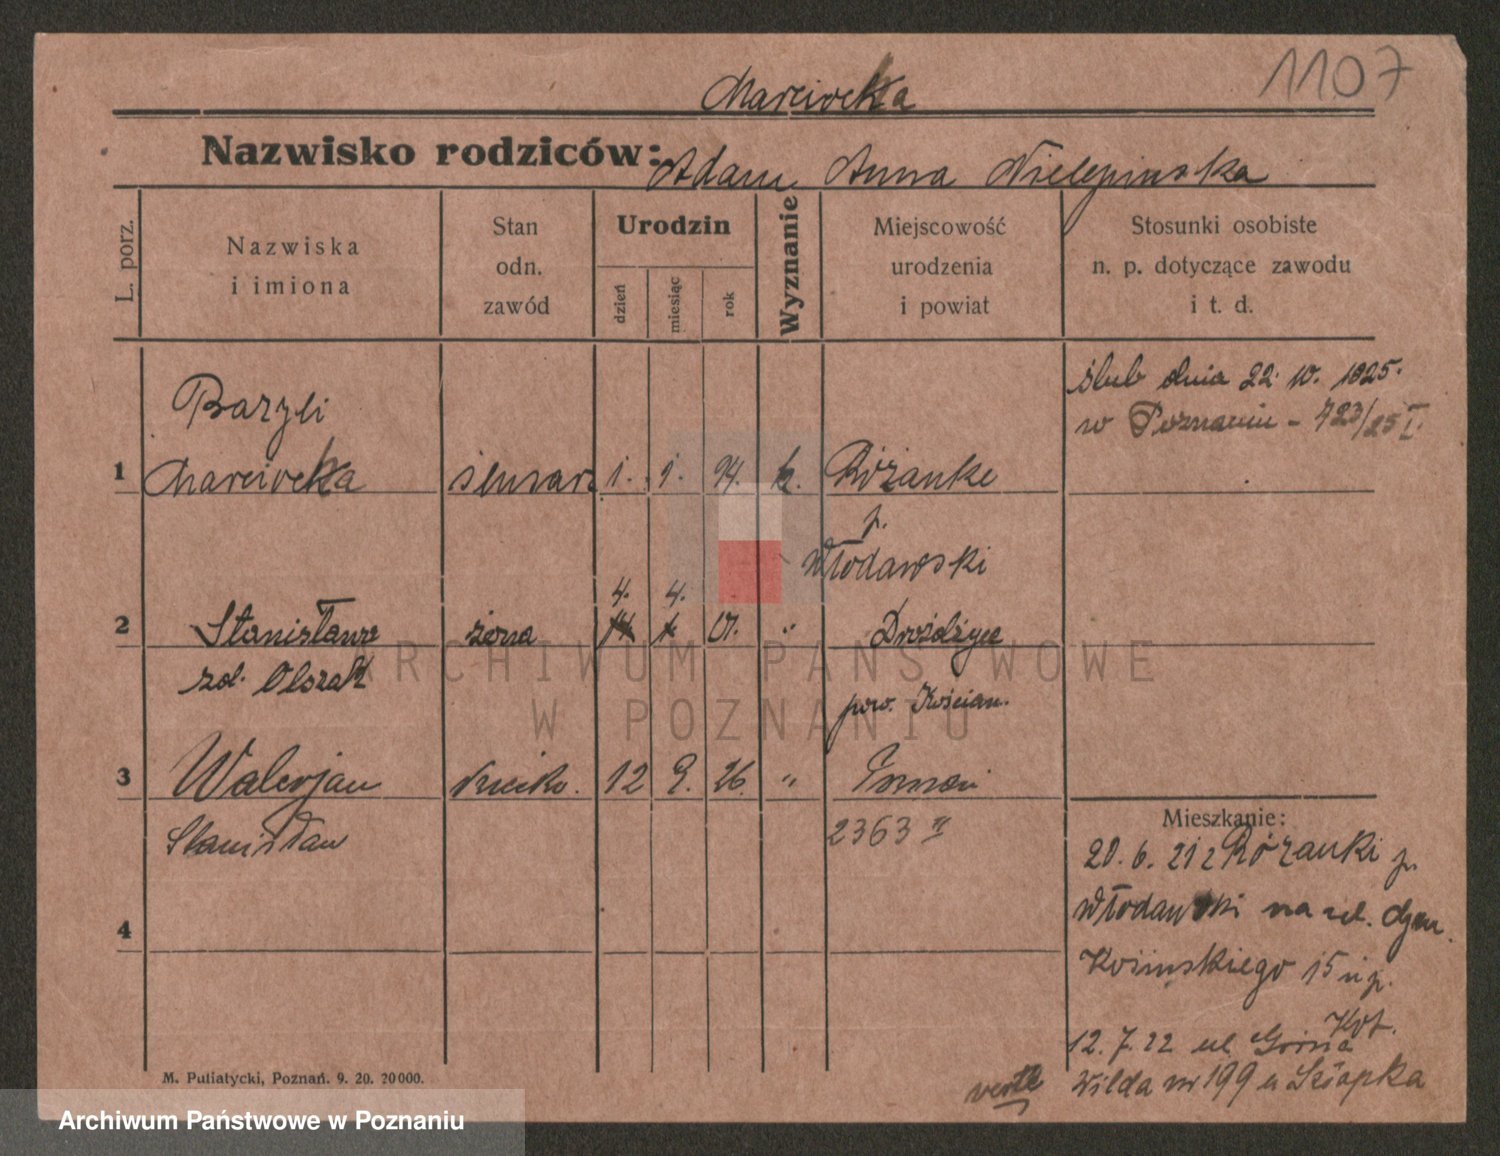 1107
Marciocha
Nazwisko rodziców: Adam Anna Nielepinska
L. porz.
Nazwiska i imiona
Stan odn. zawód
Urodzin
dzień
miesiąc
rok
Wyznanie
Miejscowość urodzenia i powiat
Stosunki osobiste n. p. dotyczące zawodu i t. d.
ślub dnia 22. 10. 1925.
w Poznaniu - 723/25 I.
Bazyli
1 Marciocha ślusarz 1. 1. 94. k. Różanke
p.
Włodawski
4. 4.
2 Stanisława żona 01. " Drożdżyce
zd. Olszak
pow. Kościan.
3 Walerjan dziecko. 12 9. 26. "
Stanisław 2363 II
4
Mieszkanie:
20. 6. 21 z Różanki p.
Włodawski na ul.
Kosinskiego 15 u p.
Kot.
12. 7. 22 ul. Górna
Wilda nr 199 u Szłapka
verte
M. Putiatycki, Poznań. 9. 20. 20000.
ARCHIWUM PAŃSTWOWE
W POZNANIU
Archiwum Państwowe w Poznaniu